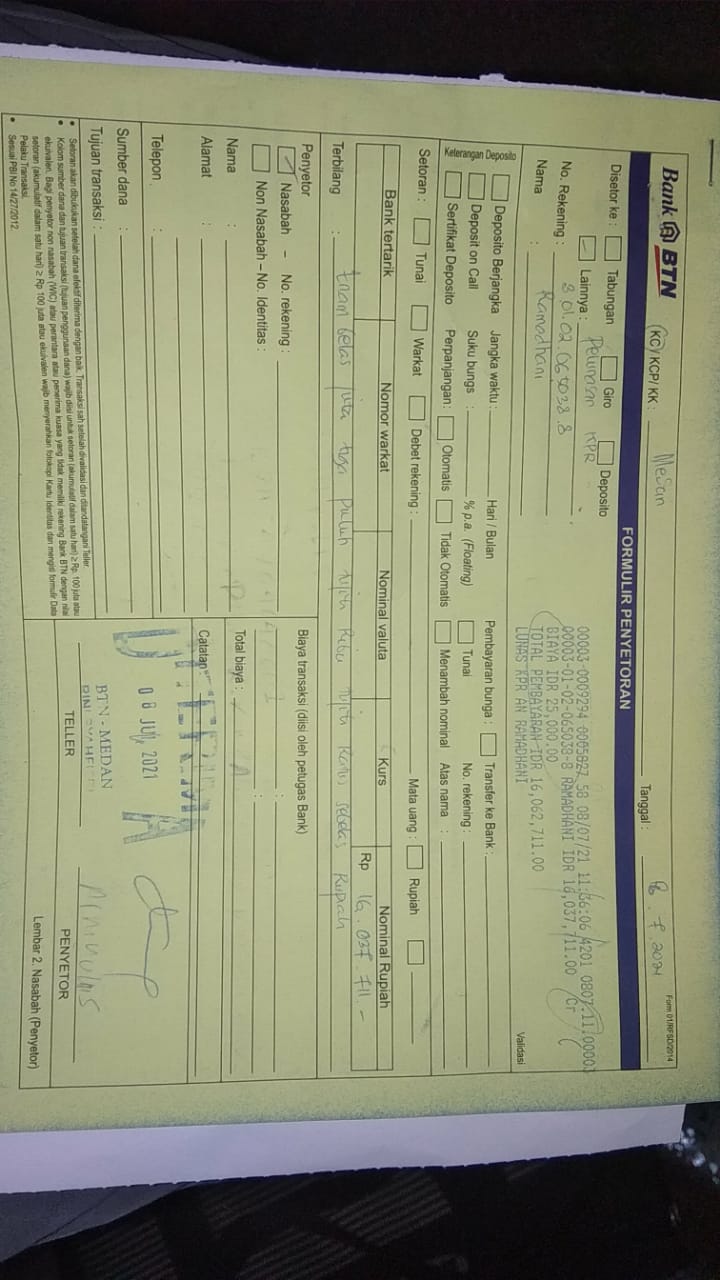 Bank BTN
(KC)/ KCP/ KK : Medan
Tanggal : 8 . 7 . 2021
Form 01/RFSD/2014
FORMULIR PENYETORAN
Disetor ke : Tabungan Giro Deposito
Lainnya : Pelunasan KPR
No. Rekening : 3.01.02.065038.8
Nama : Ramadhani
00003-0009294 0005827 58 08/07/21 11:36:06 4201 0807
00003-01-02-065038-8 RAMADHANI IDR 16,037,711.00 Cr
BIAYA IDR 25,000.00
TOTAL PEMBAYARAN IDR 16,062,711.00
LUNAS KPR AN RAMADHANI
Validasi
Keterangan Deposito
Deposito Berjangka Jangka waktu : Hari / Bulan Pembayaran bunga : Transfer ke Bank :
Deposit on Call Suku bungs : % p.a. (Floating) Tunai No. rekening :
Sertifikat Deposito Perpanjangan : Otomatis Tidak Otomatis Menambah nominal Atas nama :
Setoran : Tunai Warkat Debet rekening : Mata uang : Rupiah
Bank tertarik Nomor warkat Nominal valuta Kurs Nominal Rupiah
Rp 16.037.711 -
Terbilang : Enam belas juta tiga puluh tujuh Ribu tujuh Ratus sebelas Rupiah
Penyetor
Nasabah – No. rekening :
Non Nasabah – No. Identitas :
Nama :
Alamat :
Telepon :
Sumber dana :
Tujuan transaksi :
Biaya transaksi (diisi oleh petugas Bank)
Total biaya :
Catatan :
DITERIMA
08 JUL 2021
BTN - MEDAN
TELLER
PENYETOR
• Setoran akan dibukukan setelah dana efektif diterima dengan baik. Transaksi sah setelah divalidasi dan ditandatangani Teller.
• Kolom sumber dana dan tujuan transaksi (tujuan penggunaan dana) wajib diisi untuk setoran (akumulatif dalam satu hari) ≥ Rp. 100 juta atau
ekuivalen. Bagi penyetor non nasabah (WIC) atau perantara atau penerima kuasa yang tidak memiliki rekening Bank BTN dengan nilai
setoran (akumulatif dalam satu hari) ≥ Rp 100 juta atau ekuivalen wajib menyerahkan fotokopi Kartu Identitas dan mengisi formulir Data
Pelaku Transaksi.
• Sesuai PBI No 14/27/2012
Lembar 2. Nasabah (Penyetor)